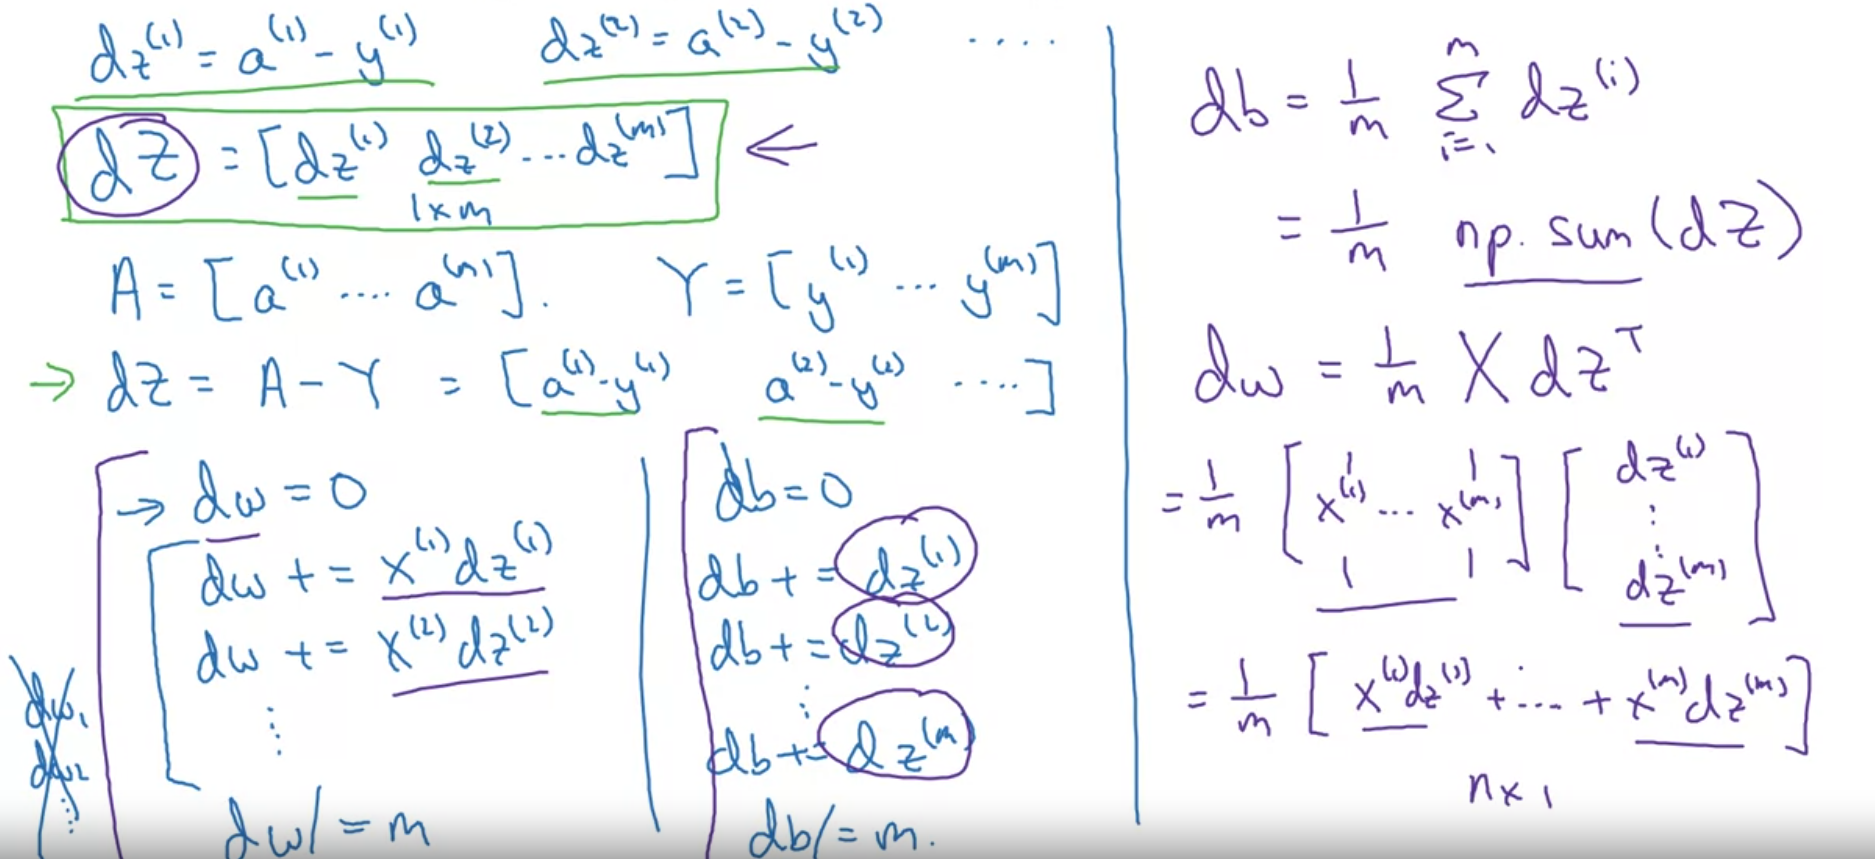 dz⁽¹⁾ = a⁽¹⁾ - y⁽¹⁾   dz⁽²⁾ = a⁽²⁾ - y⁽²⁾ ....
dZ = [dz⁽¹⁾ dz⁽²⁾ ... dz⁽ᵐ⁾] ←
1×m
A = [a⁽¹⁾ .... a⁽ᵐ⁾].   Y = [y⁽¹⁾ ... y⁽ᵐ⁾]
→ dZ = A - Y = [a⁽¹⁾-y⁽¹⁾   a⁽²⁾-y⁽²⁾ ....]
→ dw = 0
dw += x⁽¹⁾dz⁽¹⁾
dw += x⁽²⁾dz⁽²⁾
⋮
dw /= m
dw₁
dw₂
⋮
db = 0
db += dz⁽¹⁾
db += dz⁽²⁾
⋮
db += dz⁽ᵐ⁾
db /= m.
db = 1/m Σᵢ₌₁ᵐ dz⁽ⁱ⁾
= 1/m np.sum(dZ)
dw = 1/m X dZᵀ
= 1/m [x⁽¹⁾ ... x⁽ᵐ⁾] [dz⁽¹⁾ ⋮ dz⁽ᵐ⁾]
= 1/m [x⁽¹⁾dz⁽¹⁾ + ... + x⁽ᵐ⁾dz⁽ᵐ⁾]
n×1